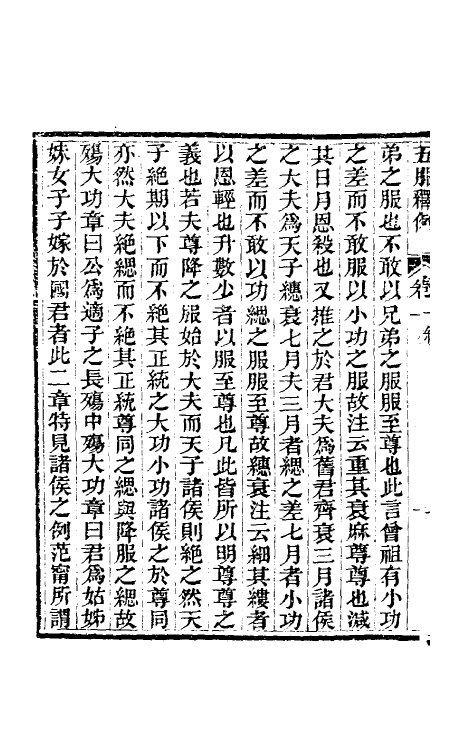 五服釋例 卷一
弟之服也不敢以兄弟之服服至尊也此言曾祖有小功
之差而不敢服以小功之服故注云重其衰麻尊尊也減
其日月恩殺也又推之於君大夫爲舊君齊衰三月諸侯
之大夫爲天子繐衰七月夫三月者緦之差七月者小功
之差而不敢以功緦之服服至尊故繐衰注云細其縷者
以恩輕也升數少者以服至尊也凡此皆所以明尊尊之
義也若夫尊降之服始於大夫而天子諸侯則絕之然天
子絕期以下而不絕其正統之大功小功諸侯之於尊同
亦然大夫絕緦而不絕其正統尊同之緦與降服之緦故
殤大功章曰公爲適子之長殤中殤大功章曰君爲姑姊
妹女子子嫁於國君者此二章特見諸侯之例范甯所謂